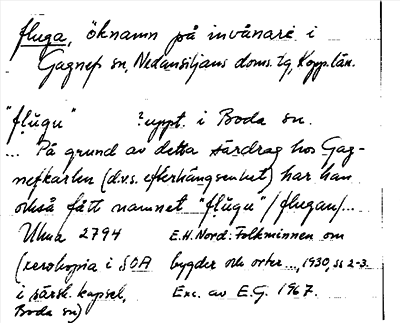 fluga, öknamn på invånare i
Gagnef sn, Nedansiljans doms. tg, Kopp. län.
"flugu" ? uppt. i Boda sn.
... På grund av detta särdrag hos Gag-
nefkarlen (d.v.s. efterhängsenhet) har han
också fått namnet "flugu" / flugan/...
Uluma 2794 E.H. Nord: Folkminnen om
(xerokopia i SOA bygder och orter..., 1930, ss 2-3.
i särsk. kapsel, Exc. av E.G. 1967.
Boda sn)